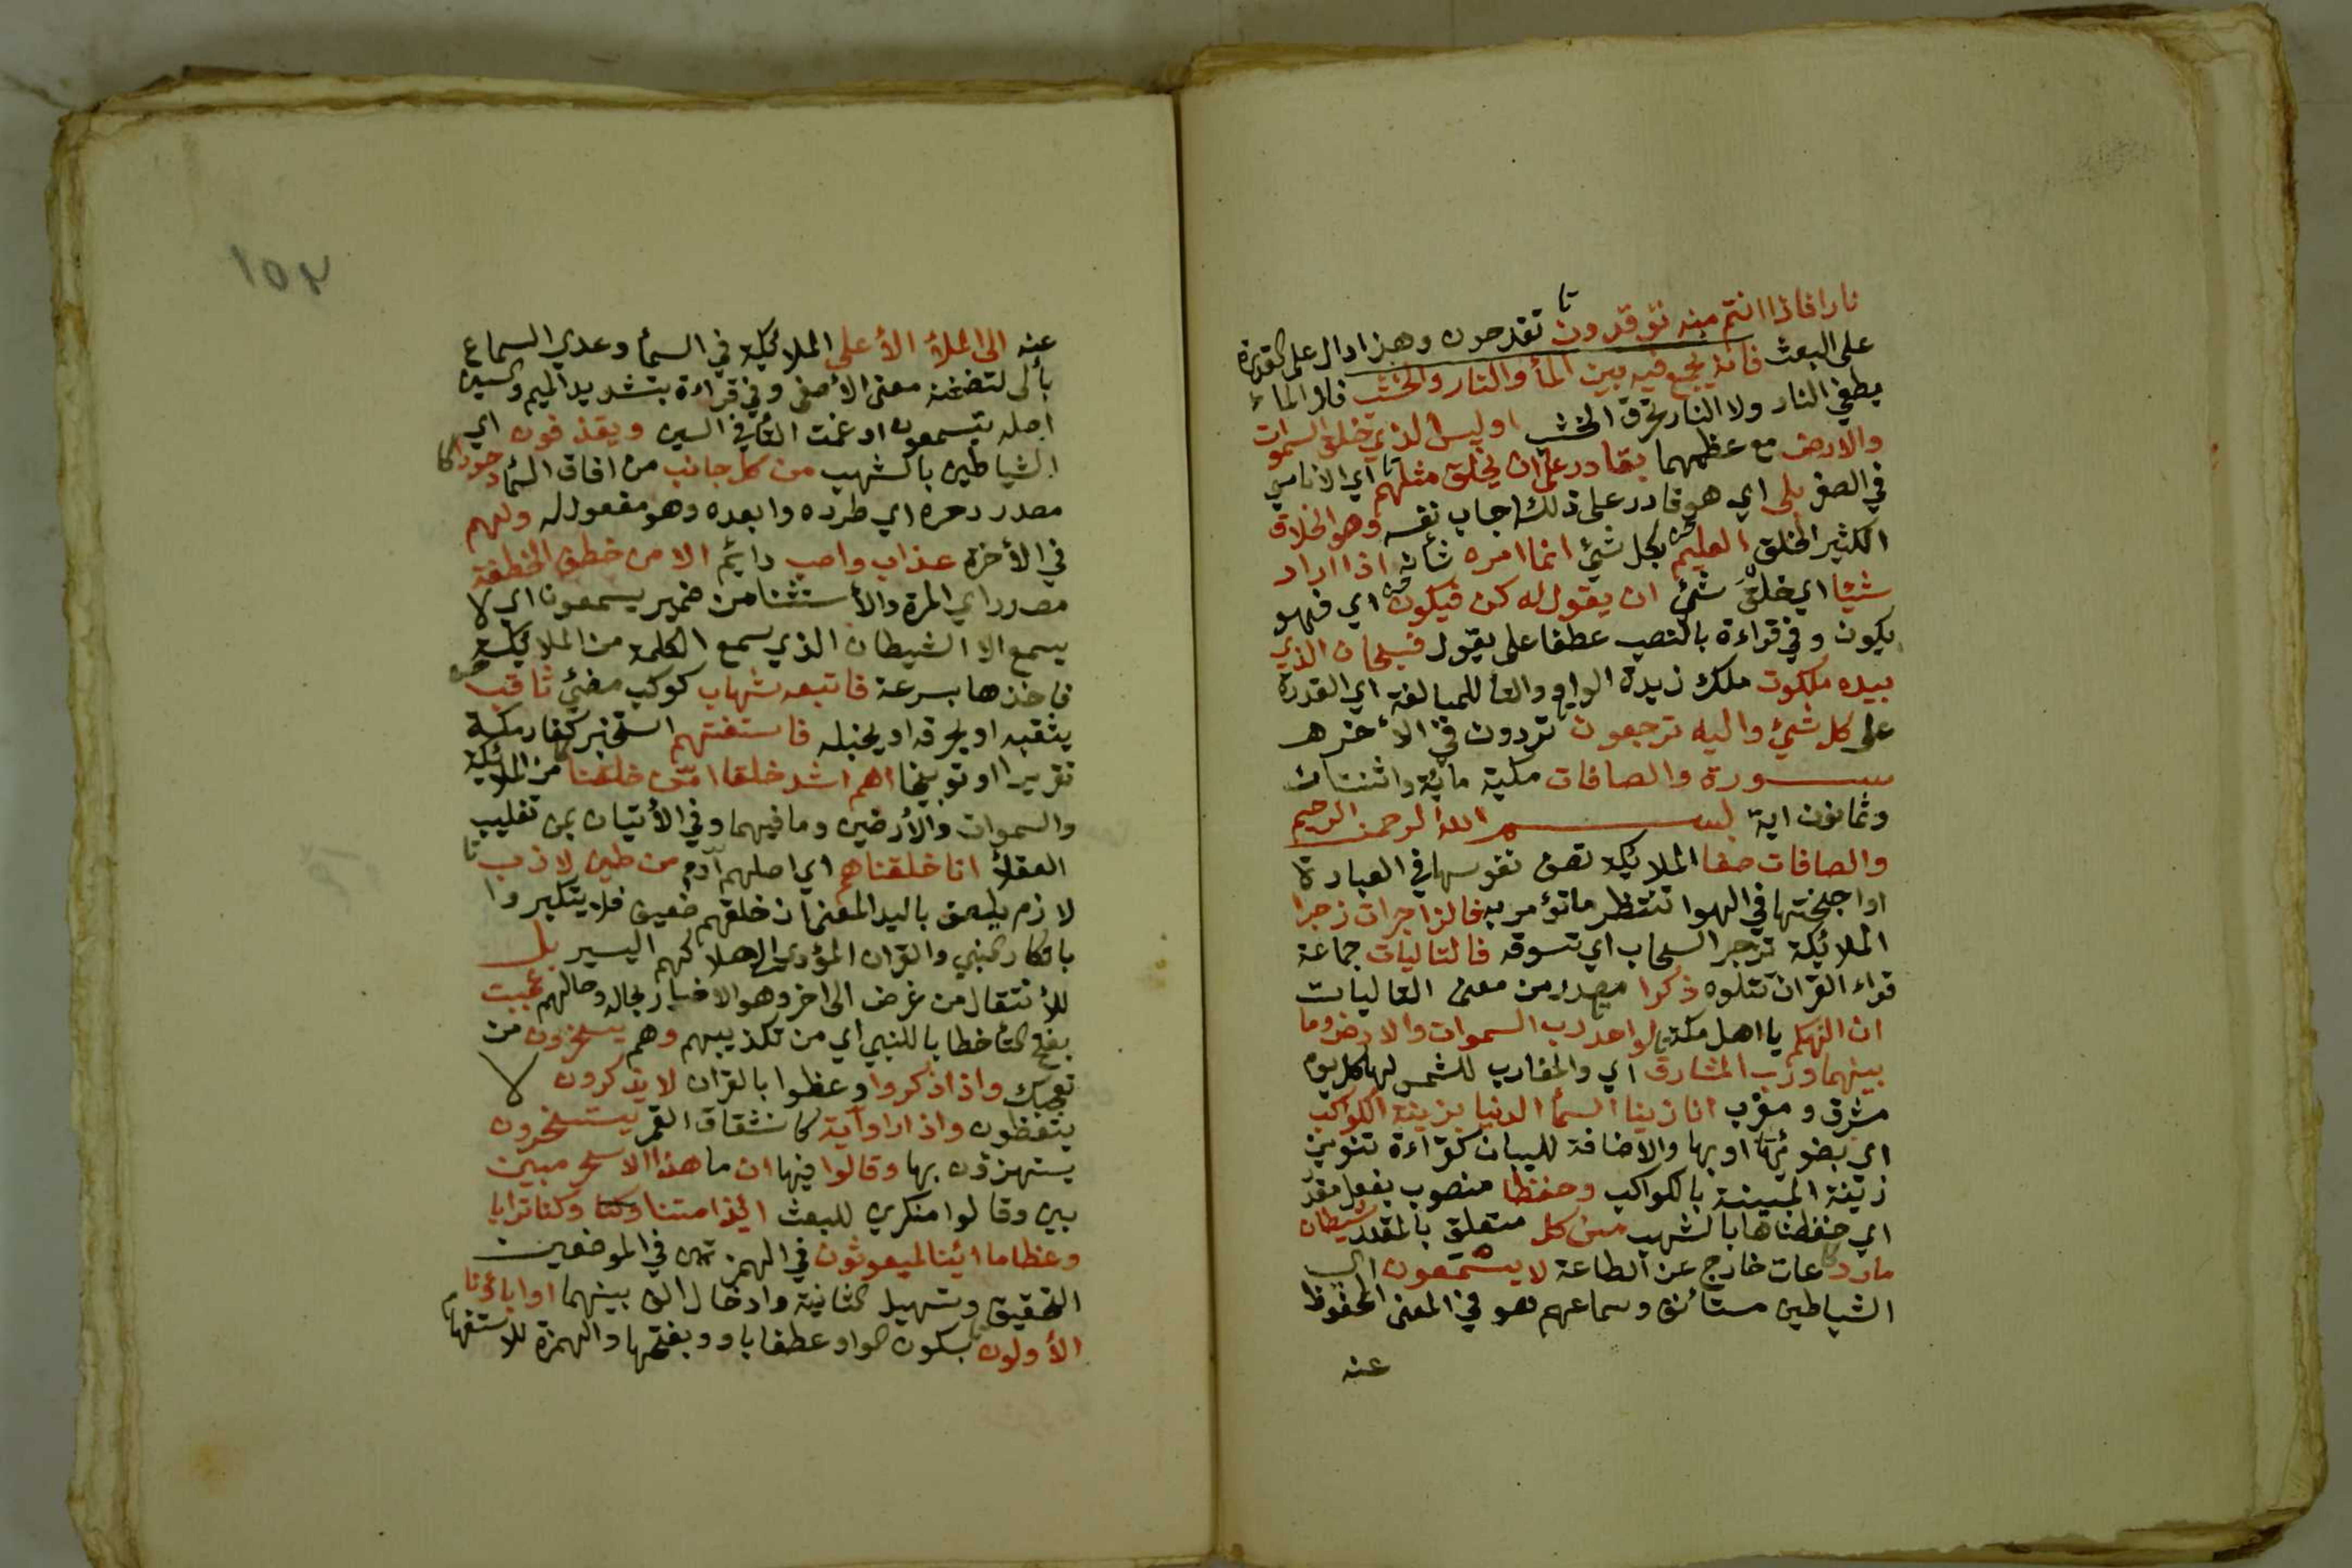 نارا فاذا انتم منه توقدون تقدحون وهذا دال على القدرة
على البعث فانه يجمع فيه بين المأ والنار والخشب فلا الماء
يطفي النار ولا النار تحرق الخشب اوليس الذي خلق السموات
والارض مع عظمهما بقادر على ان يخلق مثلهم اي الاناسي
في الصغر بلى اي هو قادر على ذلك اجاب نفسه وهو الخلاق
الكثير الخلق العليم بكل شيئ انما امره شأنه اذا اراد
شيئا اي خلق شيئ ان يقول له كن فيكون اي فهو
يكون وفي قراءة بالنصب عطفا على يقول فسبحان الذي
بيده ملكوت ملك زيدة الواو والتأ للمبالغة اي القدرة
على كل شيئ واليه ترجعون تردون في الأخره
سورة والصافات مكية مائة واثنتان
وثمانون اية بسم الله الرحمن الرحيم
والصافات صفا الملائكة تصف نفوسها في العبادة
او اجنحتها في الهوا تنتظر ما تؤمر به فالزاجرات زجرا
الملائكة تزجر السحاب اي تسوقه فالتاليات جماعة
قراء القران تتلوه ذكرا مصدر من معنى التاليات
ان الهكم يا اهل مكة لواحد رب السموات والارض وما
بينهما ورب المشارق اي والمغارب للشمس لها كل يوم
مشرق ومغرب انا زينا السمأ الدنيا بزينة الكواكب
اي بضوئها او بها والاضافة للبيان كقراءة تنوين
زينة المبينة بالكواكب وحفظا منصوب بفعل مقدر
اي حفظناها بالشهب من كل متعلق بالمقدر شيطان
مارد عات خارج عن الطاعة لا يسمعون اي
الشياطين مستأنف وسماعهم هو في المعنى المحفوظ
عنه
١٥٢
عنه الى الملأ الأعلى الملائكة في السمأ وعدي السماع
بألى لتضمنه معنى الأصغى وفي قراءة بتشديد الميم والسين
اصله يتسمعون ادغمت التأ في السين ويقذفون اي
الشياطين بالشهب من كل جانب من افاق السمأ دحورا
مصدر دحره اي طرده وابعده وهو مفعول له ولهم
في الأخرة عذاب واصب دائم الا من خطف الخطفة
مصدر اي المرة والأستثنا من ضمير يسمعون اي لا
يسمع الا الشيطان الذي سمع الكلمة من الملائكة
فاخذها بسرعة فاتبعه شهاب كوكب مضيئ ثاقب
يثقبه او يحرقه او يخبله فاستفتهم استخبر كفار مكة
تقريرا او توبيخا اهم اشد خلقا امّن خلقنا من الملائكة
والسموات والأرضين وما فيهما وفي الأتيان بمن تغليب
العقلأ انا خلقناهم اي اصلهم آدم من طين لازب
لازم يلصق باليد المعنى ان خلقهم ضعيف فلا يتكبروا
بانكار النبي والقران المؤدي الى هلاكهم اليسير بل
للأنتقال من غرض الى اخر وهو الاخبار بحاله وحالهم عجبت
بفتح التأ خطابا للنبي اي من تكذيبهم وهم يسخرون من
تعجبك واذا ذكروا وعظوا بالقران لا يذكرون لا
يتعظون واذا راوا آية كانشقاق القمر يستسخرون
يستهزؤن بها وقالوا فيها ان ما هذا الا سحر مبين
بين وقالوا منكري للبعث ائذا متنا وكنا وكنا ترابا
وعظاما ائنا لمبعوثون في الهمزتين في الموضعين
التحقيق وتسهيل الثانية وادخال الف بينهما اواباؤنا
الأولون بسكون الواو عطفا باو وبفتحها والهمزة للاستفهام